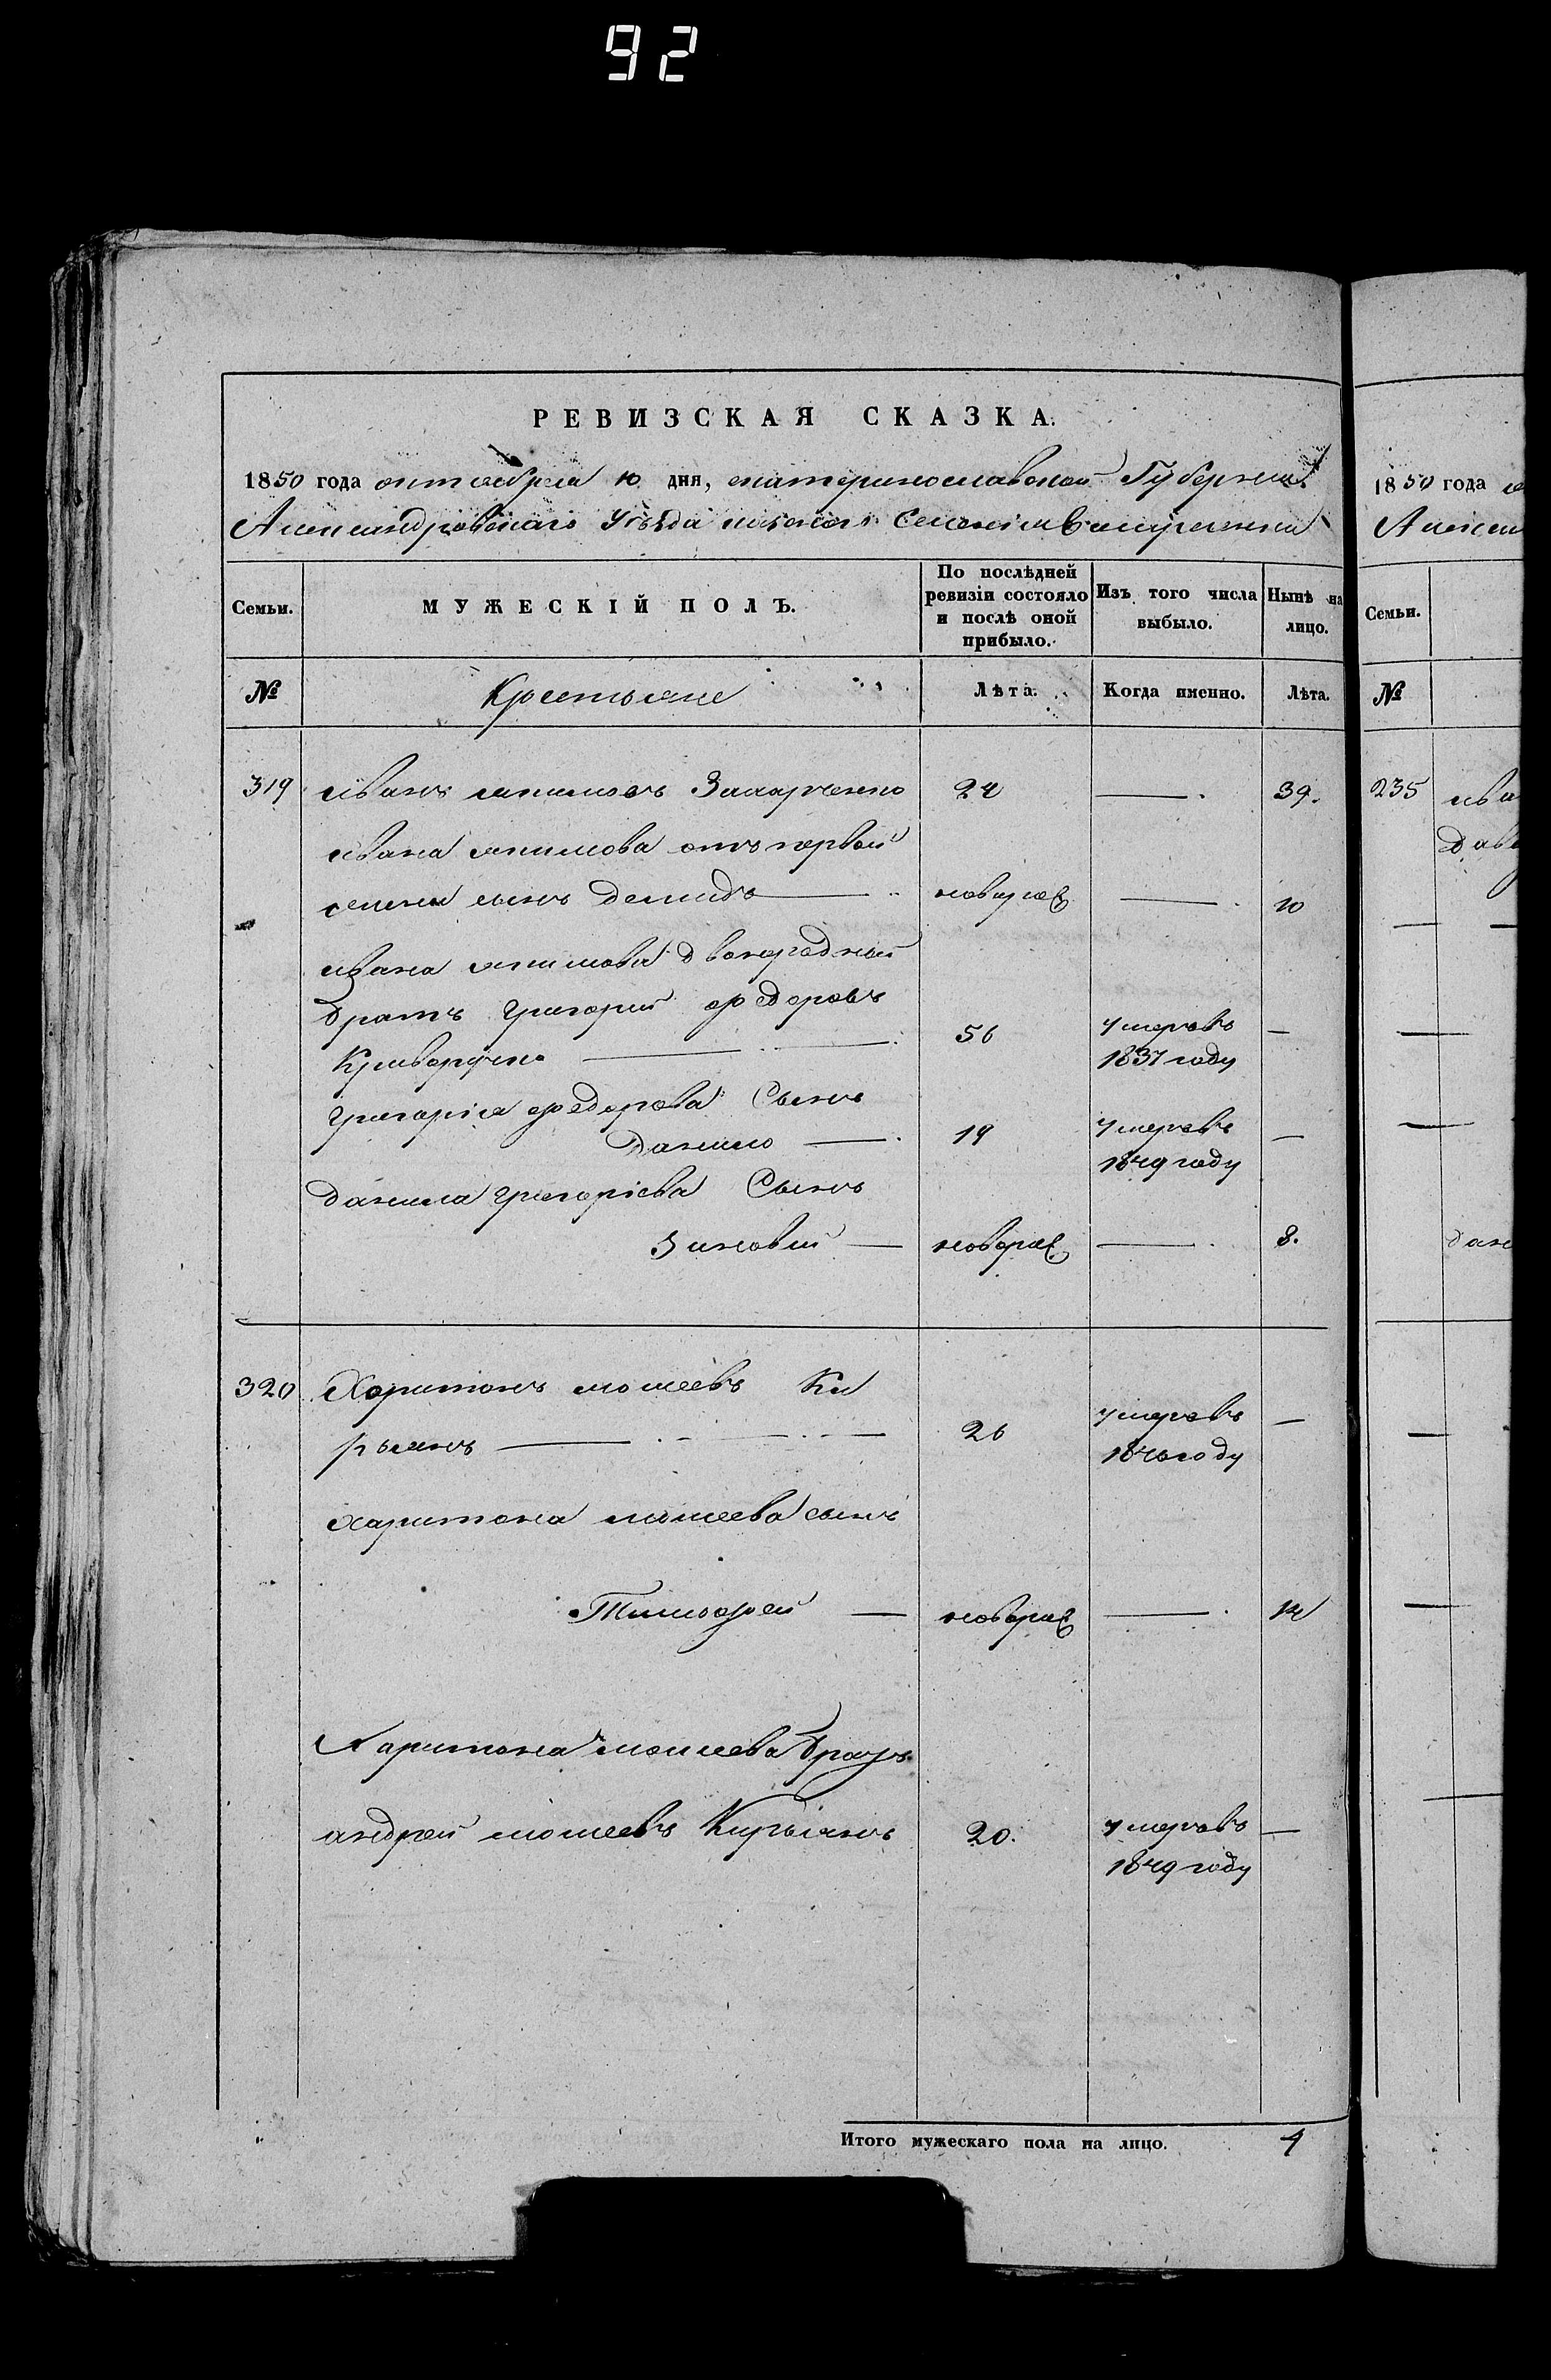 92
РЕВИЗСКАЯ СКАЗКА.
1850 года октября 10 дня, екатеринославской Губерніи
Александровскаго Уезда Селенія
Семьи.
МУЖЕСКІЙ ПОЛЪ.
По послѣдней ревизіи состояло и послѣ оной прибыло.
Изъ того числа выбыло.
Нынѣ на лицо.
№
Крестьяне
Лѣта.
Когда именно.
Лѣта.
319 иванъ якимовъ Захарченко 24 — 39.
ивана якимова отъ первой
жены сынъ Демидъ — новорож — 10
ивана якимова двоюродный
братъ григорий федоровъ
Криворучко — 56 умеръ въ 1837 году —
григорія федорова Сынъ
данило — 19 умеръ въ 1849 году —
данила григоріева Сынъ
Зиновий — новорож — 8.
320 Харитонъ моисеевъ Ки
рьянъ — 26 умеръ въ 1840 году —
харитона моисеева сынъ
Тимофей — новорож — 14
Харитона моисеева братъ
андрей моисеевъ Кирьянъ 20. умеръ въ 1849 году —
Итого мужескаго пола на лицо. 4
1850 года
Семьи.
№
235 ива